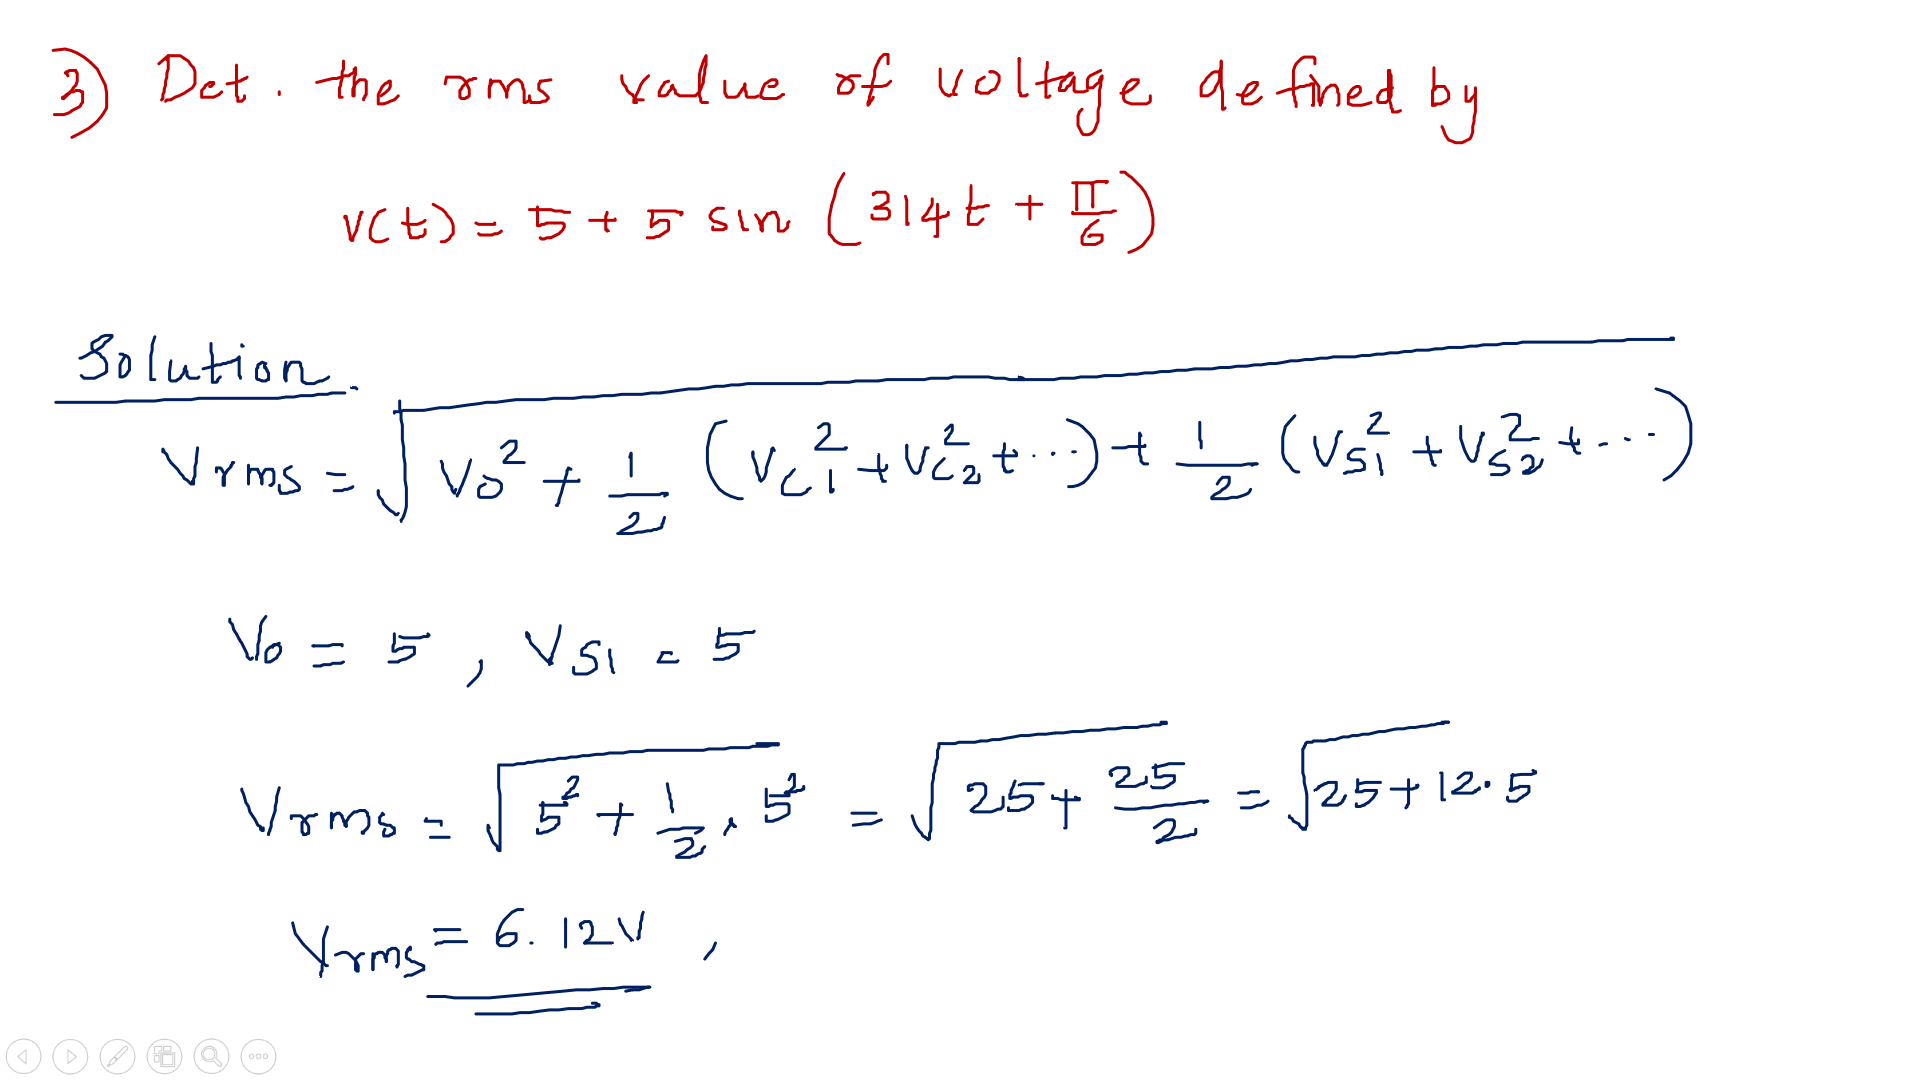 3) Det. the rms value of voltage defined by
v(t) = 5 + 5 sin (314t + π/6)
Solution.
Vrms = √(V0² + 1/2 (Vc1² + Vc2² + ...) + 1/2 (Vs1² + Vs2² + ...))
V0 = 5, Vs1 = 5
Vrms = √(5² + 1/2 . 5²) = √(25 + 25/2) = √(25 + 12.5)
Vrms = 6.12V,